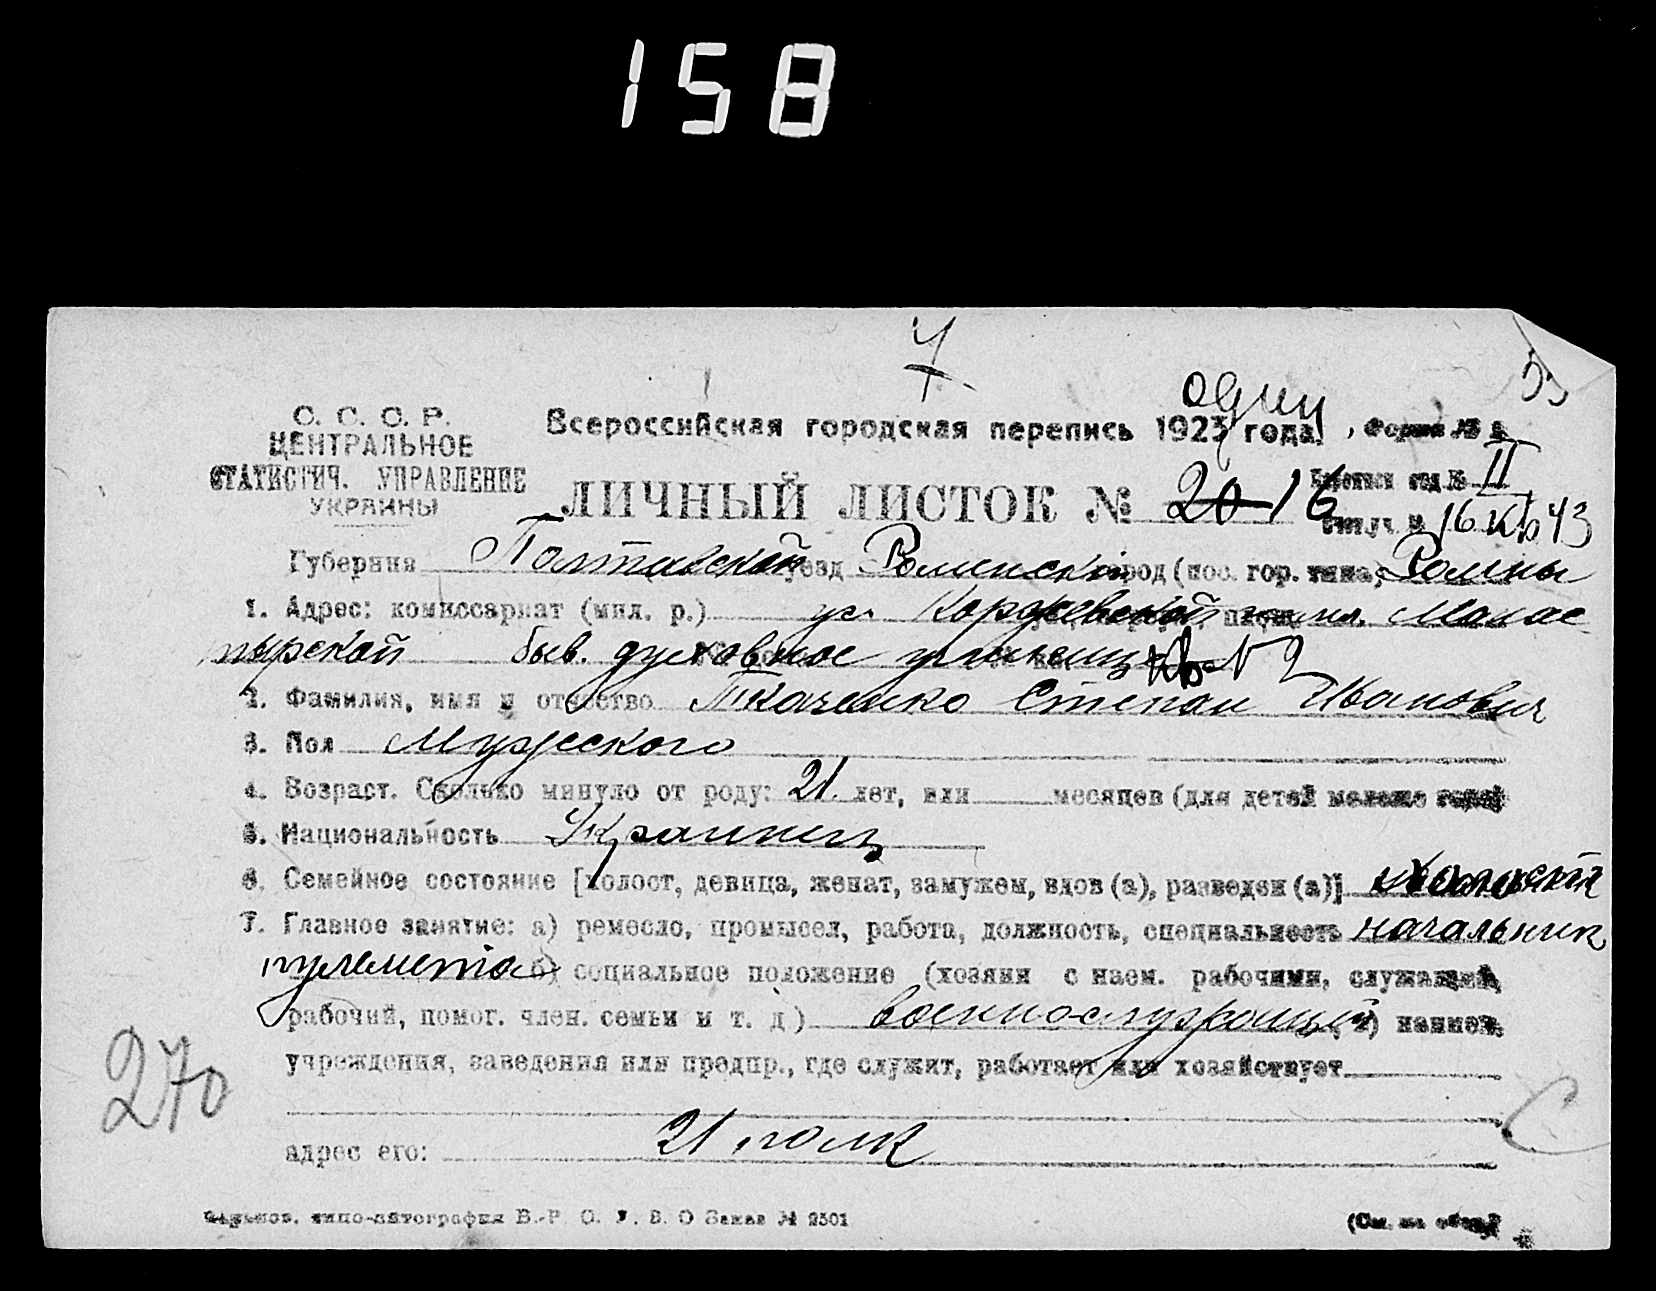 158
7
один
С. С. С. Р.
ЦЕНТРАЛЬНОЕ
СТАТИСТИЧ. УПРАВЛЕНИЕ
УКРАИНЫ
Всероссийская городская перепись 1923 года. Форма №
ЛИЧНЫЙ ЛИСТОК № 20 16
отд № II
16 43
Губерния Полтавской уезд Роменский город (пос. гор. типа) Ромны
1. Адрес: комиссариат (мил. р.) ул. Коржевской пл. Монас
тырской быв. духовное училище кв N 2
2. Фамилия, имя и отчество Ткаченко Степан Иванович
3. Пол Мужеского
4. Возраст. Сколько минуло от роду: 21 лет, или месяцев (для детей моложе года)
5. Национальность Украинец
6. Семейное состояние [холост, девица, женат, замужем, вдов (а), разведен (а)] холост
7. Главное занятие: а) ремесло, промысел, работа, должность, специальность начальник
пулемета б) социальное положение (хозяин с наем. рабочими, служащий,
рабочий, помог. член. семьи и т. д) военнослужащий в) наимен,
учреждения, заведения или предпр., где служит, работает или хозяйствует
270
адрес его: 21 полк
Харьков. типо-литография В.-Р. О. У. В. О Заказ № 2501
(См. на обор.)